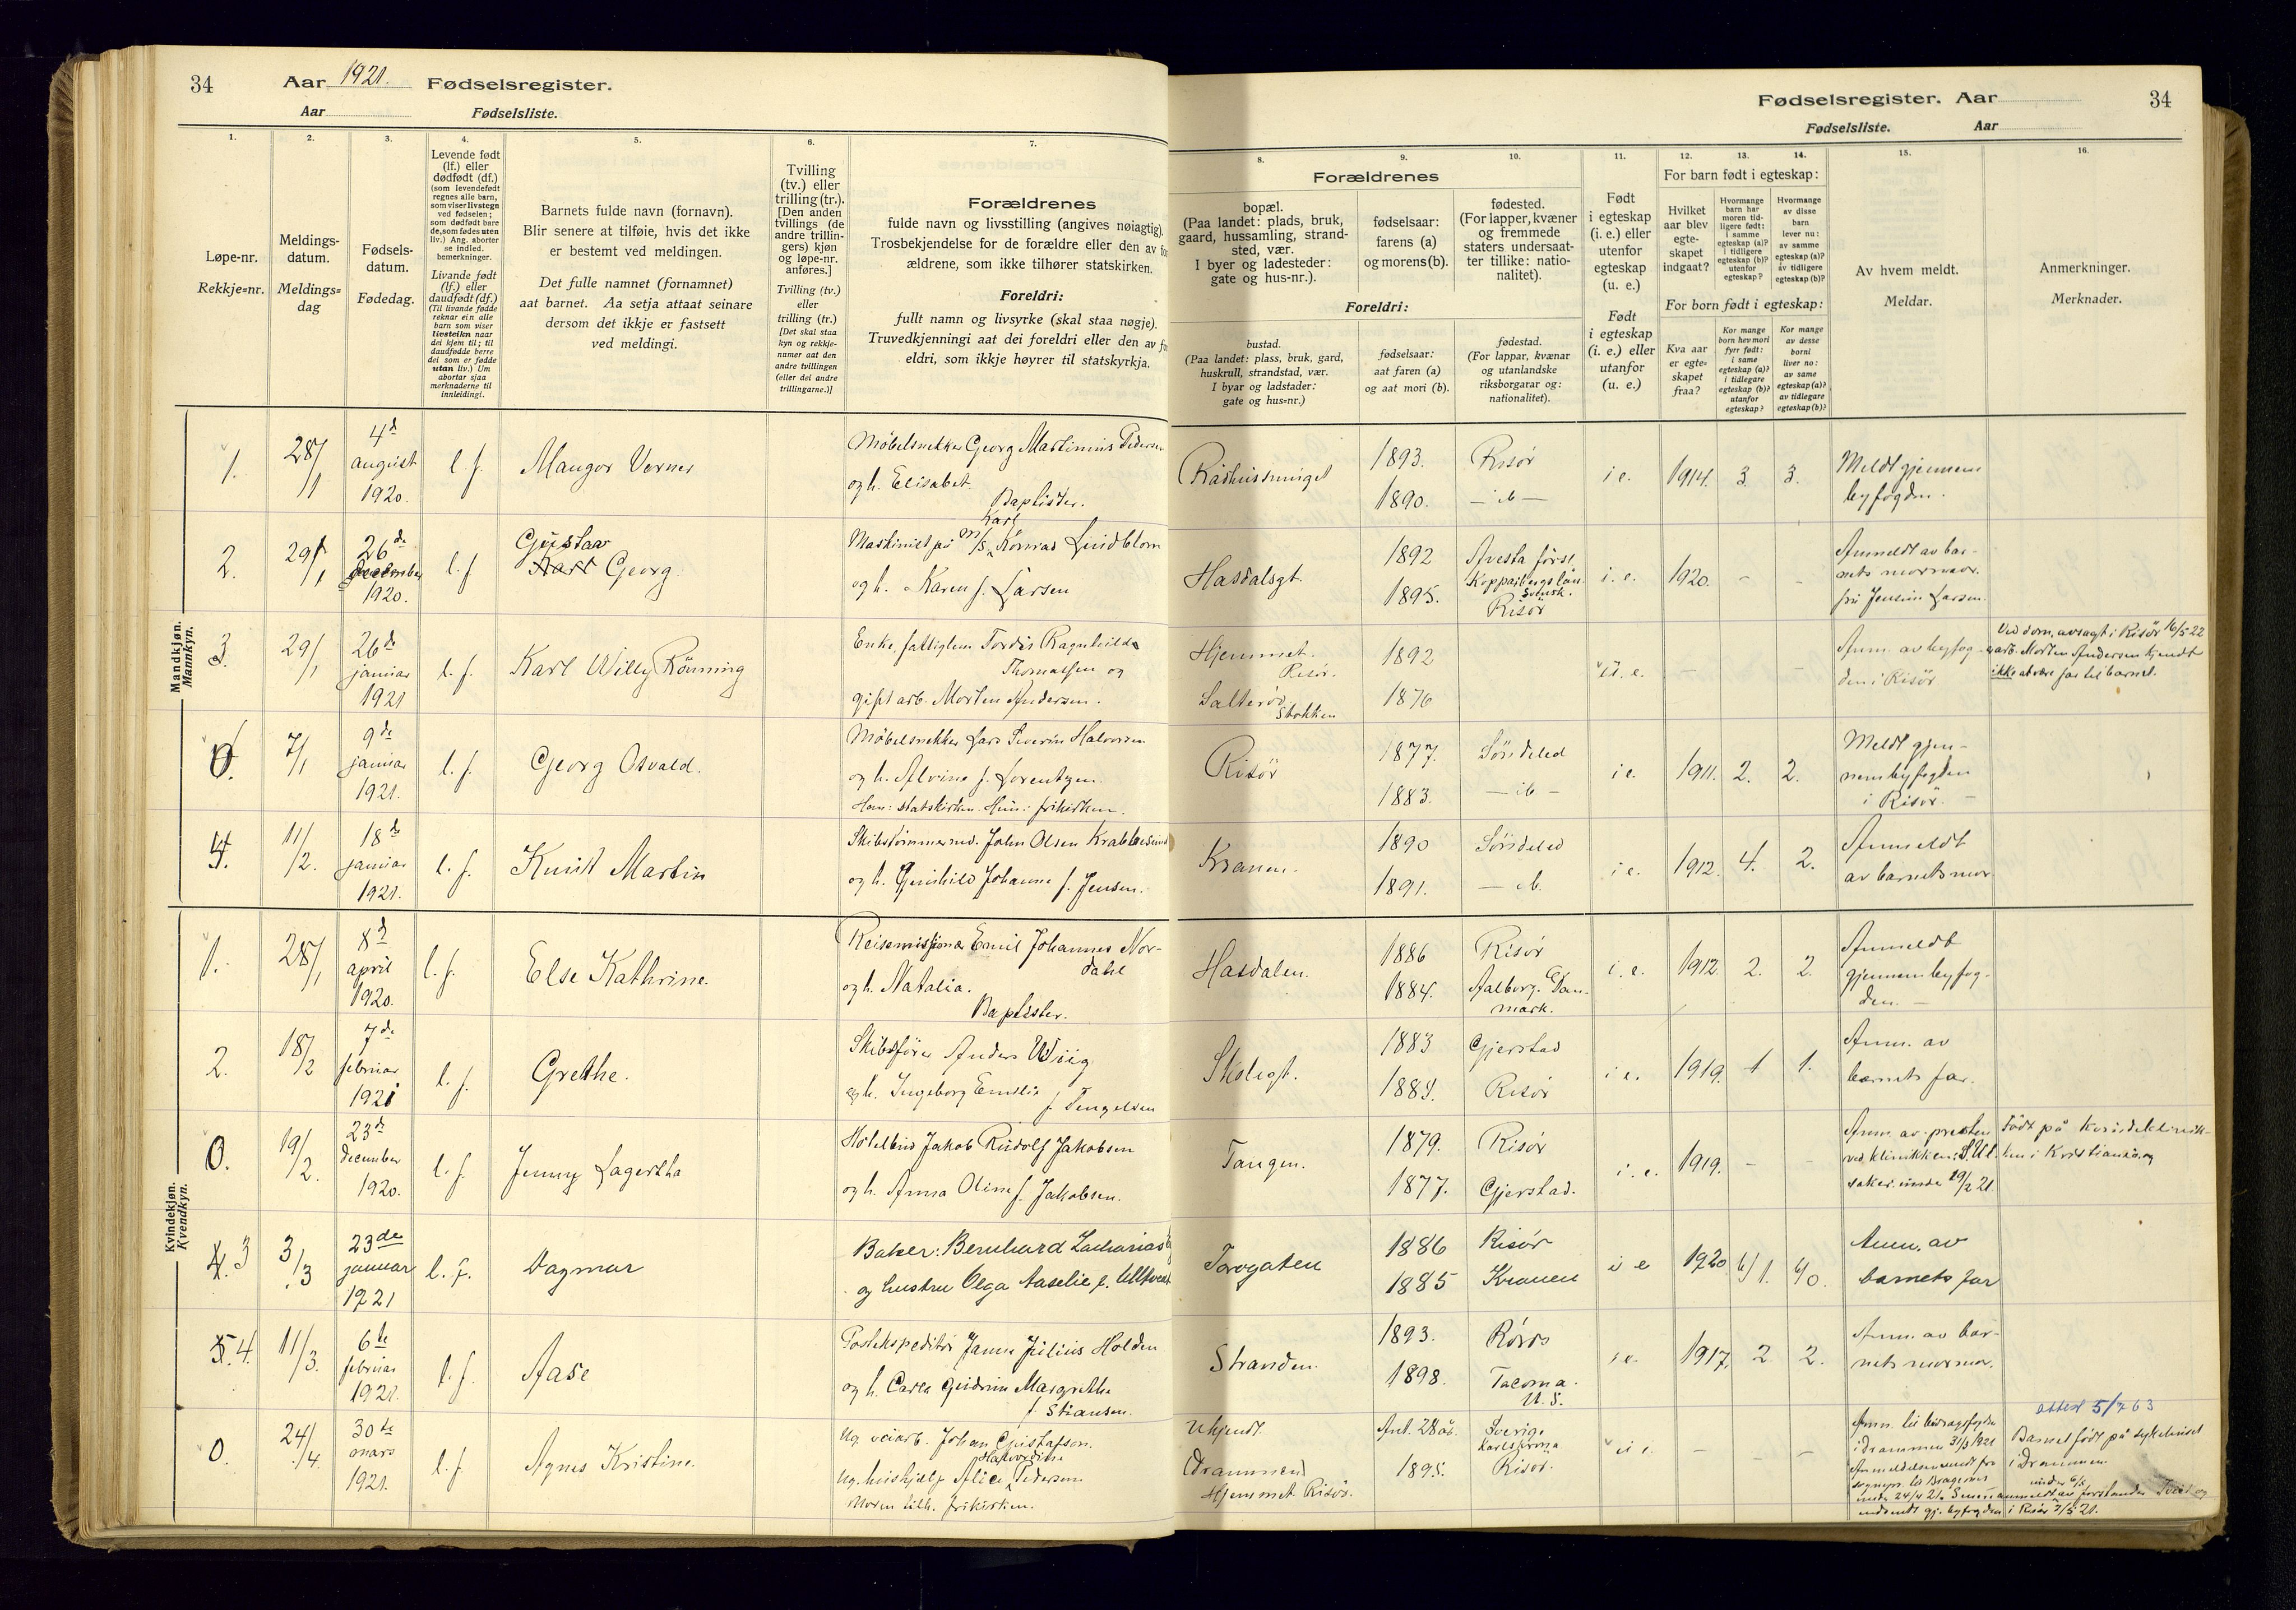 34 Aar 1921. Fødselsregister.
Aar Fødselsliste.
Fødselsregister. Aar 34
Fødselsliste. Aar
1.
2.
3.
4.
5.
6.
7.
8.
9.
10.
11.
12.
13.
14.
15.
16.
Løpe-nr.
Rekkje=nr.
Meldings-
datum.
Meldings=
dag
Fødsels-
datum.
Fødedag.
Levende født
(lf.) eller
dødfødt (df.)
(som levendefødt
regnes alle barn,
som viser livstegn
ved fødselen;
som dødfødt bare
de, som fødes uten
liv.) Ang. aborter
se indled.
bemerkninger.
Livande født
(lf.) eller
daudfødt (df.)
(Til livande fødde
reknar ein alle
barn som viser
livsteikn naar
dei kjem til; til
daudfødde berre
dei som er fødde
utan liv.) Um
abortar sjaa
merknaderne til
innleidingi.
Barnets fulde navn (fornavn).
Blir senere at tilføie, hvis det ikke
er bestemt ved meldingen.
Det fulle namnet (fornamnet)
aat barnet. Aa setja attaat seinare
dersom det ikkje er fastsett
ved meldingi.
Tvilling
(tv.) eller
trilling (tr.).
[Den anden
tvillings (de
andre trillin-
gers) kjøn
og løpe-nr.
anføres.]
Tvilling (tv.)
eller
trilling (tr.)
[Det skal staa
kyn og rekkje-
numer aat den
andre tvillingen
(eller dei andre
trillingarne.)]
Forældrenes
fulde navn og livsstilling (angives nøiagtig).
Trosbekjendelse for de forældre eller den av for
ældrene, som ikke tilhører statskirken.
Foreldri:
fullt namn og livsyrke (skal staa nøgje).
Truvedkjenningi aat dei foreldri eller den av for
eldri, som ikkje høyrer til statskyrkja.
Forældrenes
bopæl.
(Paa landet: plads, bruk,
gaard, hussamling, strand-
sted, vær.
I byer og ladesteder:
gate og hus-nr.).
fødselsaar:
farens (a)
og morens (b).
fødested.
(For lapper, kvæner
og fremmede
staters undersaat-
ter tillike: natio-
nalitet).
Foreldri:
bustad.
(Paa landet: plass, bruk, gard,
huskrull, strandstad, vær.
I byar og ladstader:
gate og hus=nr.)
fødselsaar:
aat faren (a)
og aat mori (b).
fødestad.
(For lappar, kvænar
og utanlandske
riksborgarar og:
nationalitet).
Født
i egteskap
(i. e.) eller
utenfor
egteskap
(u. e.)
Født
i egteskap
(i. e.) eller
utanfor
(u. e.)
For barn født i egteskap:
Hvilket
aar blev
egte-
skapet
indgaat?
Hvormange
barn har
moren tid-
ligere født:
i samme
egteskap (a)?
i tidligere
egteskap (b)?
utenfor
egteskap?
Hvormange
av disse
barn
lever nu:
av samme
egteskap (a)?
av tidligere
egteskap (b)?
For born født i egteskap:
Kva aar
er egte-
skapet
fraa?
Kor mange
born hev mori
fyrr født:
i same
egteskap (a)?
i tidlegare
egteskap (b)?
utanfor
egteskap?
Kor mange
av desse
borni
liver no:
av same
egteskap (a)?
av tidlegare
egteskap (b)?
Av hvem meldt.
Meldar.
Anmerkninger.
Merknader.
Mandkjøn.
Mannkyn.
1. 28/1 4d august 1920. l. f. Maugor Verner
Møbelsnekker Georg Martinius Pedersen
og h. Elisabet.
Baptister.
1893. Risör
1890. — ib —
i e. 1914. 3 3. Meldt gjennem
byfogden.
2. 29/1 26de december 1920. l. f. Gustav
Karl Georg.
Karl
Maskinist på m/s Konrad Lindblom
og h. Karen f. Larsen
Hasdalsgt. 1892 Avesta förs.
Kopparbergs län.
Svensk.
1895. Risör
i. e. 1920. - - Anmeldt av bar-
nets mormor.
fru Jensine Larsen.
3. 29/1 26de januar 1921 l. f. Karl Willy Rönning
Enke, fattiglem Tordis Ragnhilda
Thomassen og
gift arb. Morten Andersen.
Hjemmet. 1892
Risör.
Salteröd 1876
Stokken
u. e. - - - Anm. av byfog-
den i Risör
Ved dom, avsagt i Risör 16/5 22
arb. Morten Andersen kjendt
ikke at være far til barnet.
0. 7/1 9de januar 1921. l. f. Georg Osvald.
Møbelsnekker Lars Severin Halvorsen
og h. Alvine f. Lorentzen.
Han: statskirken. Hun: frikirken.
Risör 1877. Söndeled
1883. — ib —
i e. 1911. 2. 2. Meldt gjen-
nem byfogden
i Risör. —
4. 11/2. 18de januar 1921. l. f. Knut Martin
Skibstömmermd. John Olsen Krabbesund
og h. Gunhild Johanne f. Jensen.
Kranen. 1890 Söndeled
1891. — ib.
i e. 1912. 4. 2. Anmeldt
av barnets mor
Kvindekjøn.
Kvendkyn.
1. 28/1 8d april 1920. l. f. Else Kathrine.
Reisemissionær Emil Johannes Nor-
dahl
og h. Natalia.
Baptister.
Hasdalen. 1886 Risör
1884. Aalborg. Dan-
mark.
i. e. 1912. 2. 2. Anmeldt
gjennem byfog-
den. —
2. 18/2 7de februar 1921 l. f. Grethe.
Skibsförer Anders Wiig
og h. Ingeborg Emilie
f. Tengelsen
Skolegt. 1883 Gjerstad
1884. Risör
i e. 1919. 1 1. Anm. av
barnets far.
0. 19/2. 23de december 1920. l. f. Jenny Lagertha
Hotelbud Jakob Rudolf Jakobsen
og h. Anna Oline f. Jakobsen.
Tangen. 1879. Risör
1877. Gjerstad.
i. e. 1919. - - Anm. av presten
ved klinikken: S. Ul.
saker. under 19/2 21.
Född på kvindeklinik-
ken i Kristiania
4. 3 3/3 23de januar 1921 l. f. Dagmar
Baker: Bernhard Zacharias
og hustru Olga Aaselie f.
Torvgaten 1886 Risör
1885 Kranen
i e 1920 Anm. av
barnets far
5. 4. 11/3. 6te februar 1921. l. f. Aase
Postekspeditör Janne Julius Holden
og h. Carla Gudrun Margrethe
f. Stiansen.
Stranden. 1893. Röros
1898. Tacoma.
U. S.
i e. 1917. 2 2. Anm. av bar-
nets mormor.
0. 24/4. 30te mars 1921. l. f. Agnes Kristine.
Ug. veiarb. Johan Gustafson.
Halvordine
Ug. hushjelp Alice Pedersen
Moren tilh. frikirken.
Ukjendt. Ant. 28 år. Sverige
Karlskrona
Drammen 1895. Risör.
Hjemmet Risör.
u e. - - Anm. til bidragsfogden
i Drammen 31/3 1921
Anmeldelsen sendt fra
sognepr. til Bragernes
under 24/4 21.
anmeldt av forstander
indsendt gj. byfogden i Risör 7/5 21.
attest 5/7 63
Barnet født på sykehuset
i Drammen.